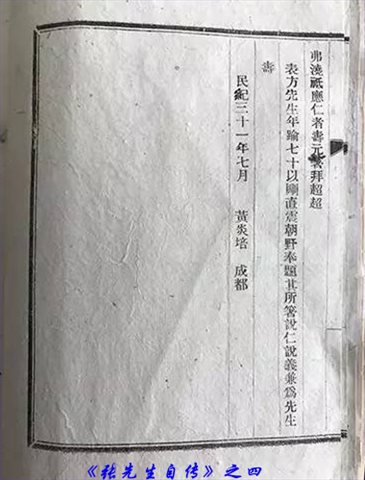 弗澆祇應仁者壽元 拜超超
表方先生年踰七十以剛直震朝野奉題其所箸說仁說義兼爲先生
壽
民紀三十一年七月 黃炎培 成都
《張先生自传》之四